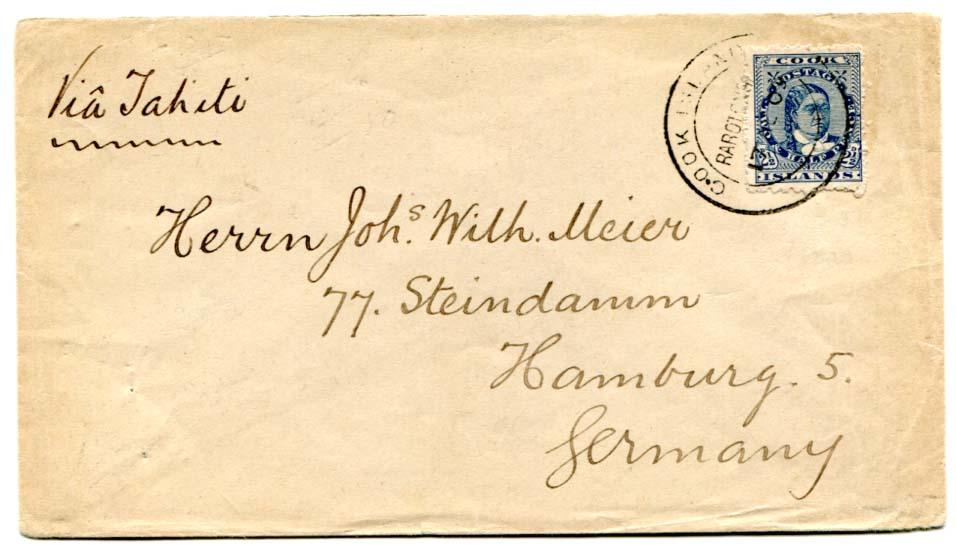 Viâ Tahiti
COOK ISLAND
RAROTONGA
COOK
POSTAGE
HALF
2½
2½
ISLANDS
Herrn Johs. Wilh. Meier
77. Steindamm
Hamburg. 5.
Germany